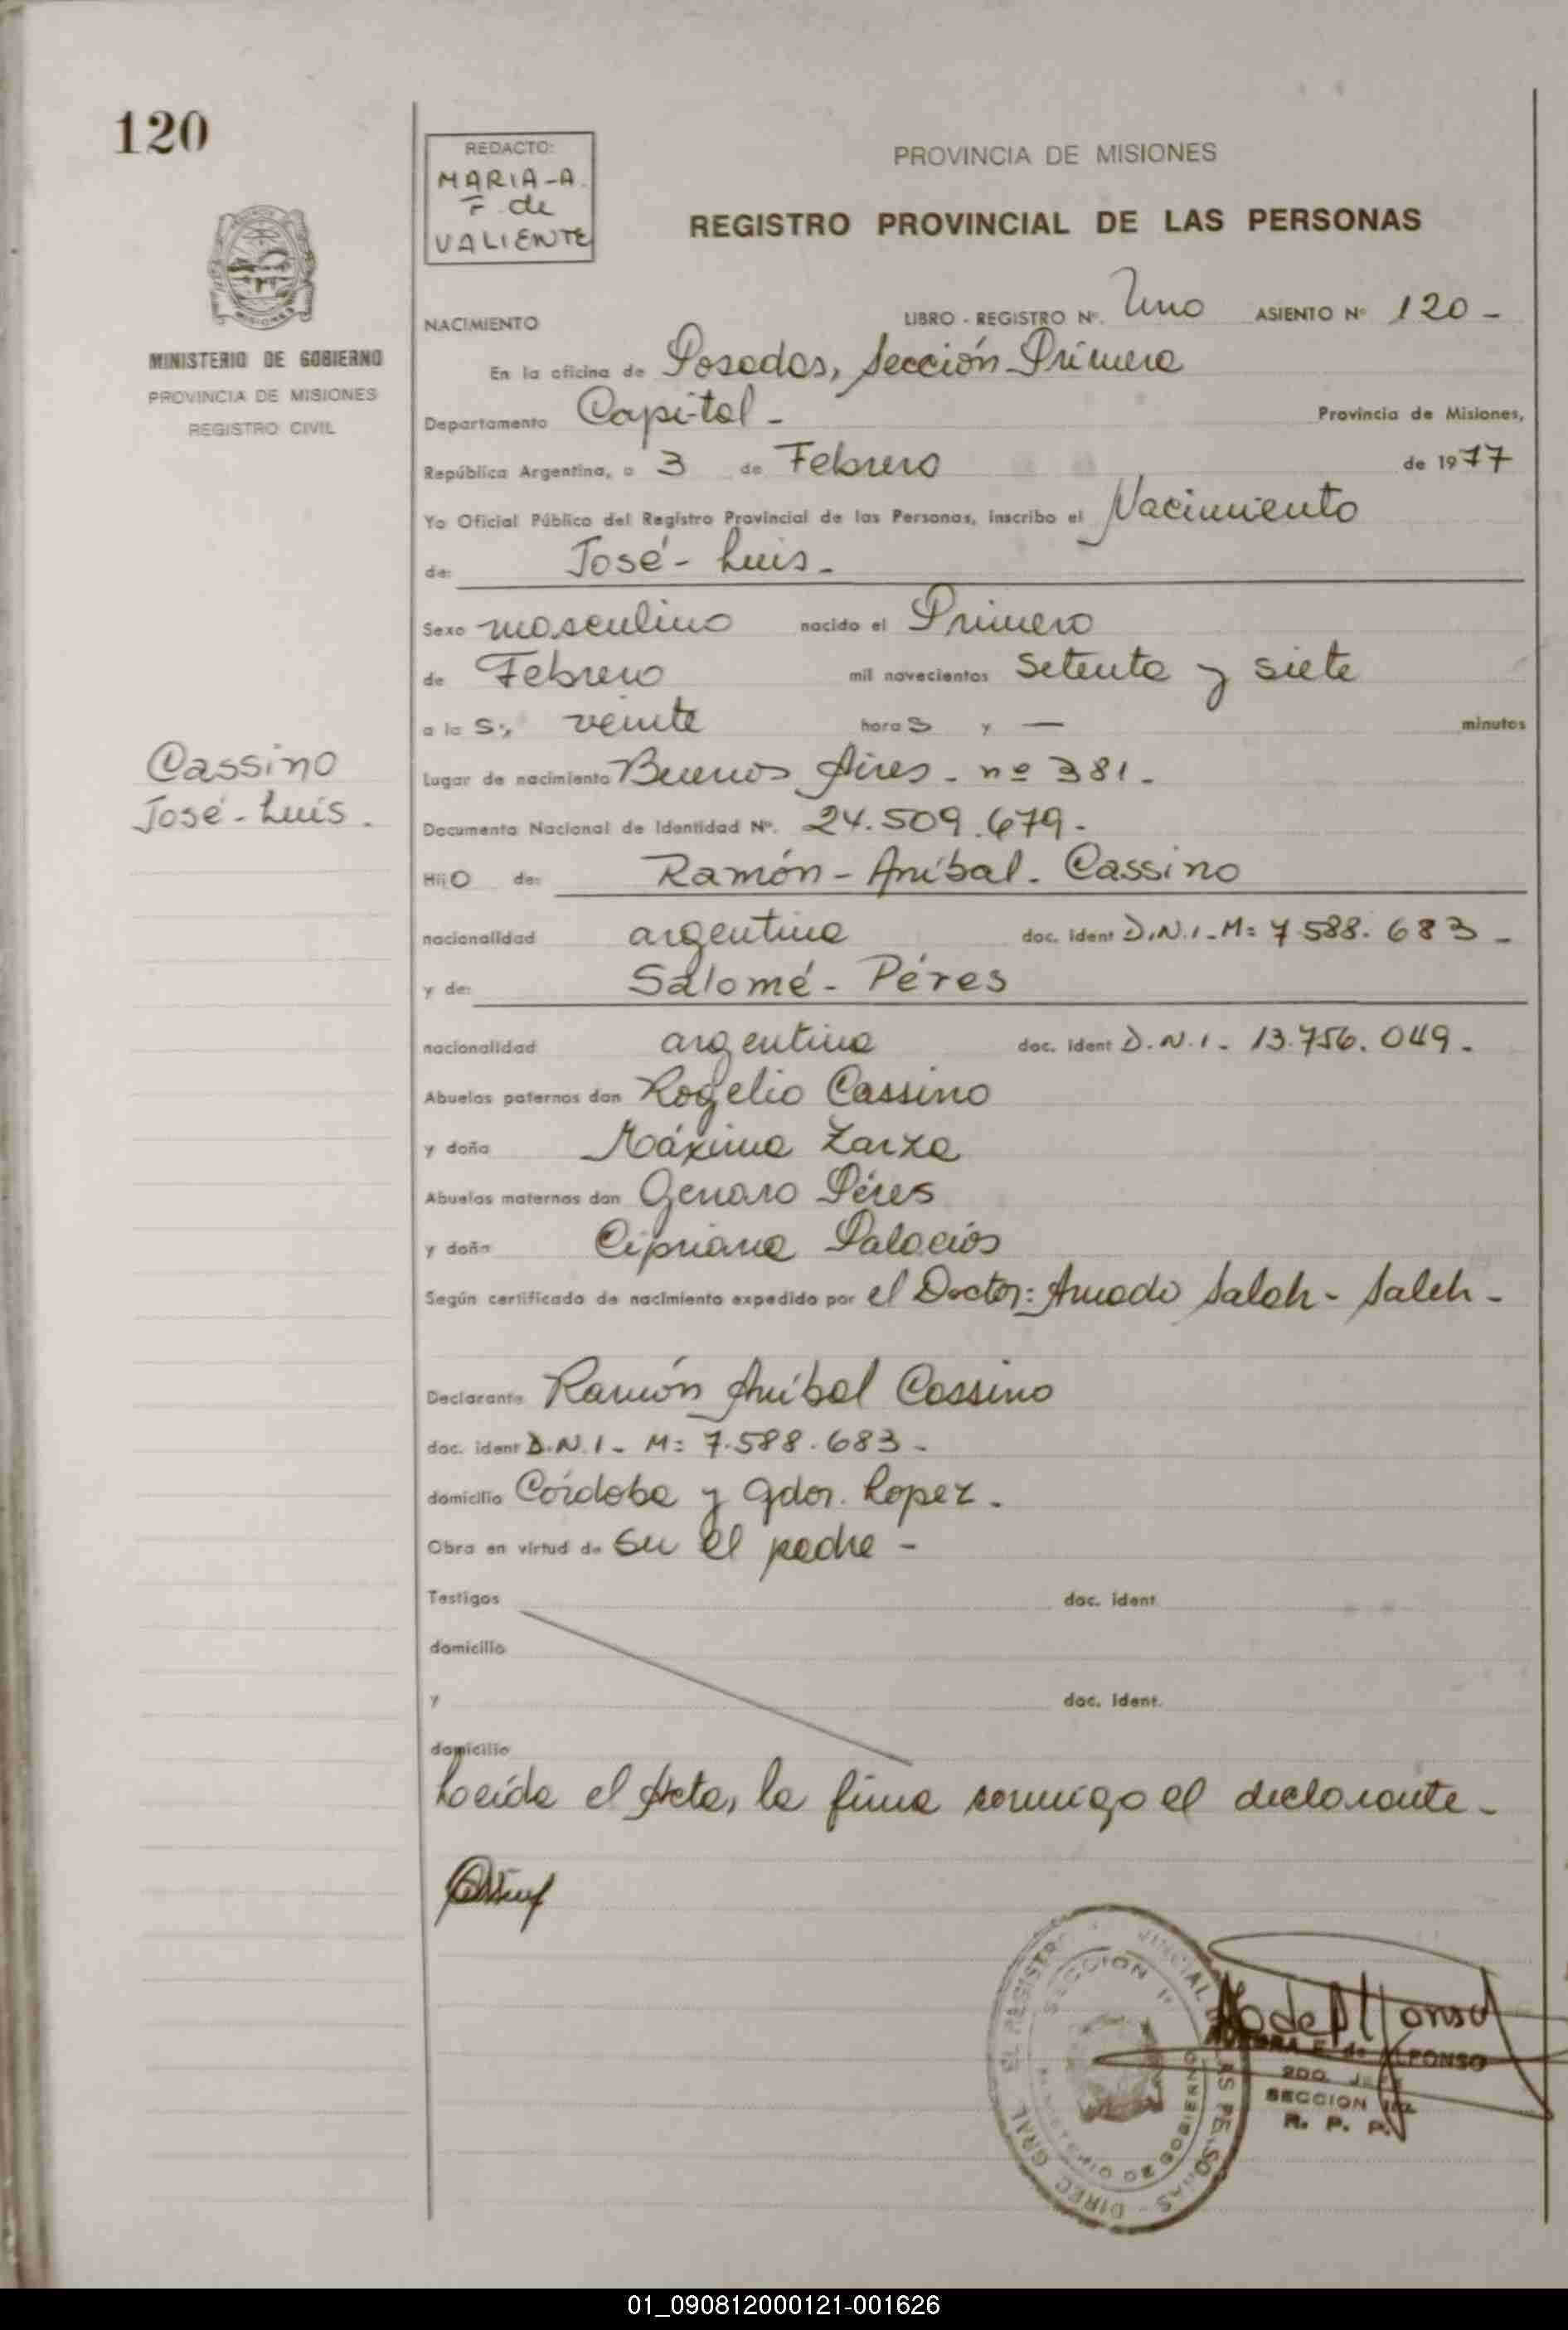 120
REDACTO:
MARIA-A.
F. de
VALIENTE
PROVINCIA DE MISIONES
REGISTRO PROVINCIAL DE LAS PERSONAS
MISIONES
MINISTERIO DE GOBIERNO
PROVINCIA DE MISIONES
REGISTRO CIVIL
NACIMIENTO LIBRO - REGISTRO Nº. Uno ASIENTO Nº 120 -
En la oficina de Posadas, Sección Primera
Departamento Capital - Provincia de Misiones,
República Argentina, a 3 de Febrero de 1977
Yo Oficial Público del Registro Provincial de las Personas, inscribo el Nacimiento
de: José - Luis -
Sexo masculino nacido el Primero
de Febrero mil novecientos setenta y siete
a las, veinte horas y — minutos
Cassino
José - Luis.
Lugar de nacimiento Buenos Aires - nº 381 -
Documento Nacional de Identidad Nº. 24.509.679 -
Hijo de: Ramón - Aníbal - Cassino
nacionalidad argentina doc. ident D.N.I - M: 7.588.683 -
y de: Salomé - Péres
nacionalidad argentina doc. ident D.N.I - 13.756.049 -
Abuelos paternos don Rogelio Cassino
y doña Máxima Zarza
Abuelos maternos don Genaro Péres
y doña Cipriana Palacios
Según certificado de nacimiento expedido por el Doctor: Amado Saleh - Saleh -
Declarante Ramón Aníbal Cassino
doc. ident D.N.I - M: 7.588.683 -
domicilio Córdoba y Gdor. Lopez -
Obra en virtud de su el padre -
Testigos doc. ident
domicilio
y doc. ident.
domicilio
Leída el Acta, la firma conmigo el declarante -
DIREC GRAL EL REGISTRO AS PERSONAS
SECCION 1ª
GOBIERNO
de Alfonso
E. de ALFONSO
2DO. JEFE
SECCION 1ra
R. P. P.
01_090812000121-001626